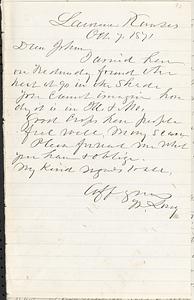 Lawrence Kansas
Oct. 7, 1871
Dear John
I arrived here
on Wednesday found the
heat 90 in the Shade
You Cannot imagine how
dry it is in Ills & Mo,
Good Crops here people
feel well. Many
Please me what
you have & oblige.
My kind regards to all,
Aff yours